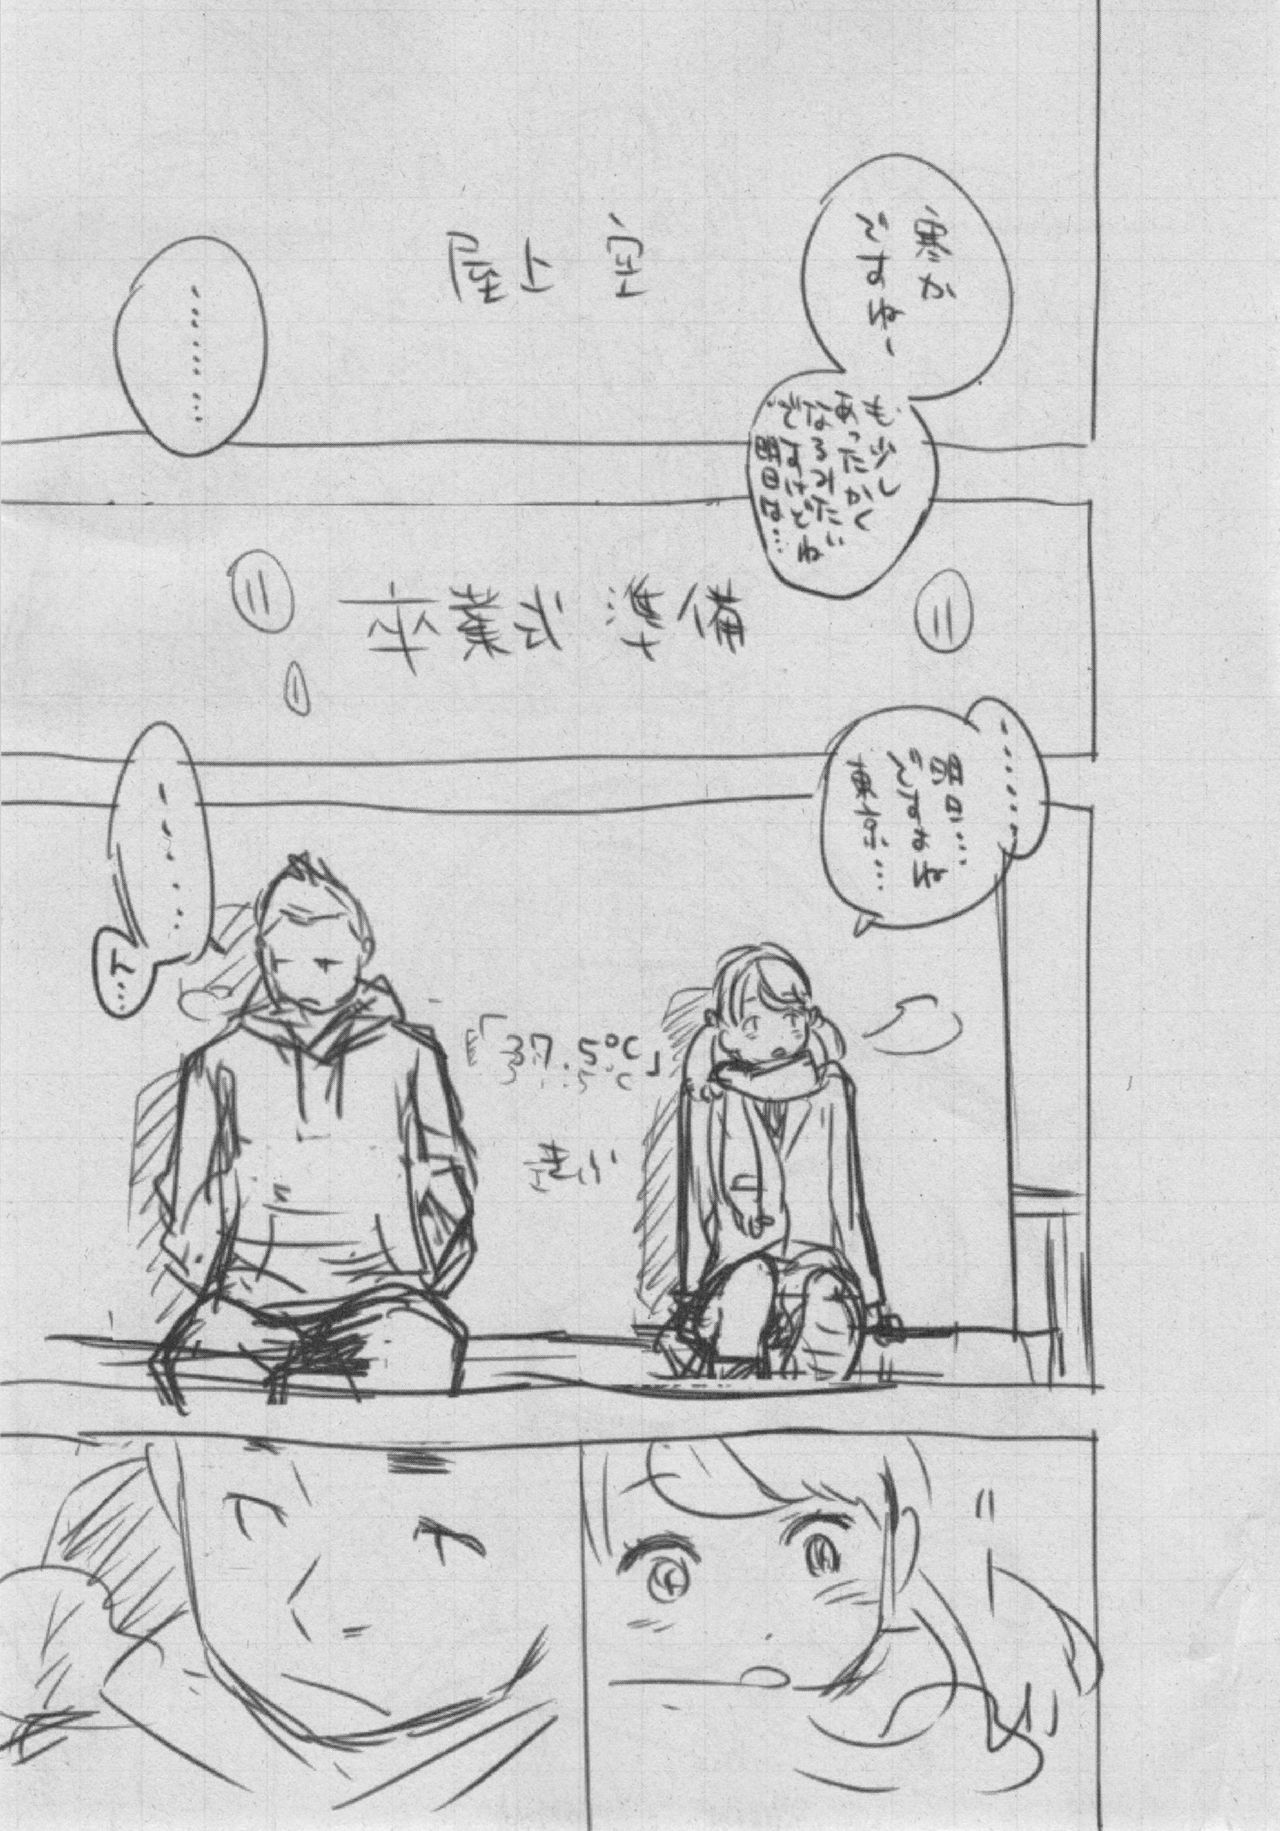 寒か
ですねー
も少し
あったかく
なるみたい
ですけどね
明日は…
………
屋上 空
卒業式 準備
……
明日…
ですよね
東京…
……
ト…
「37.5℃」